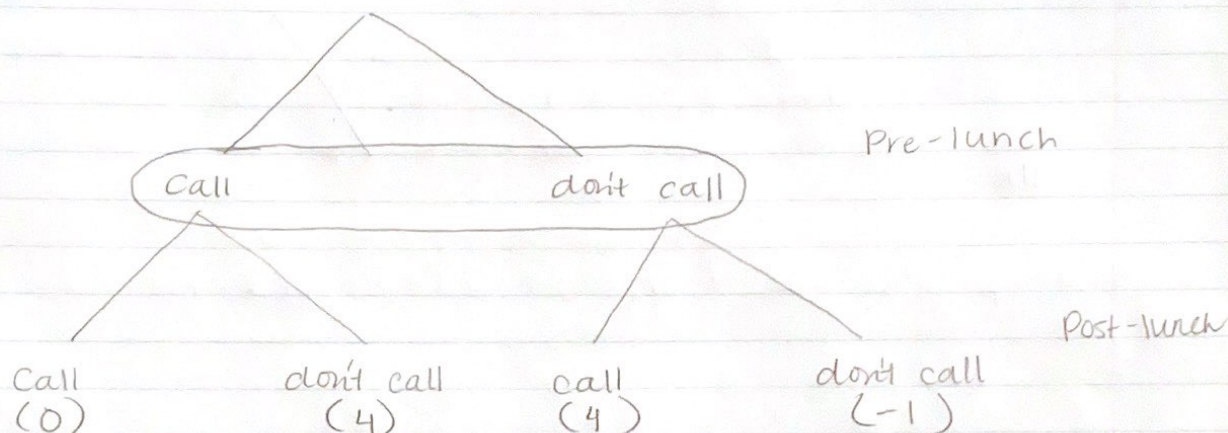 Pre-lunch
Call don't call
Post-lunch
Call don't call call don't call
(0) (4) (4) (-1)